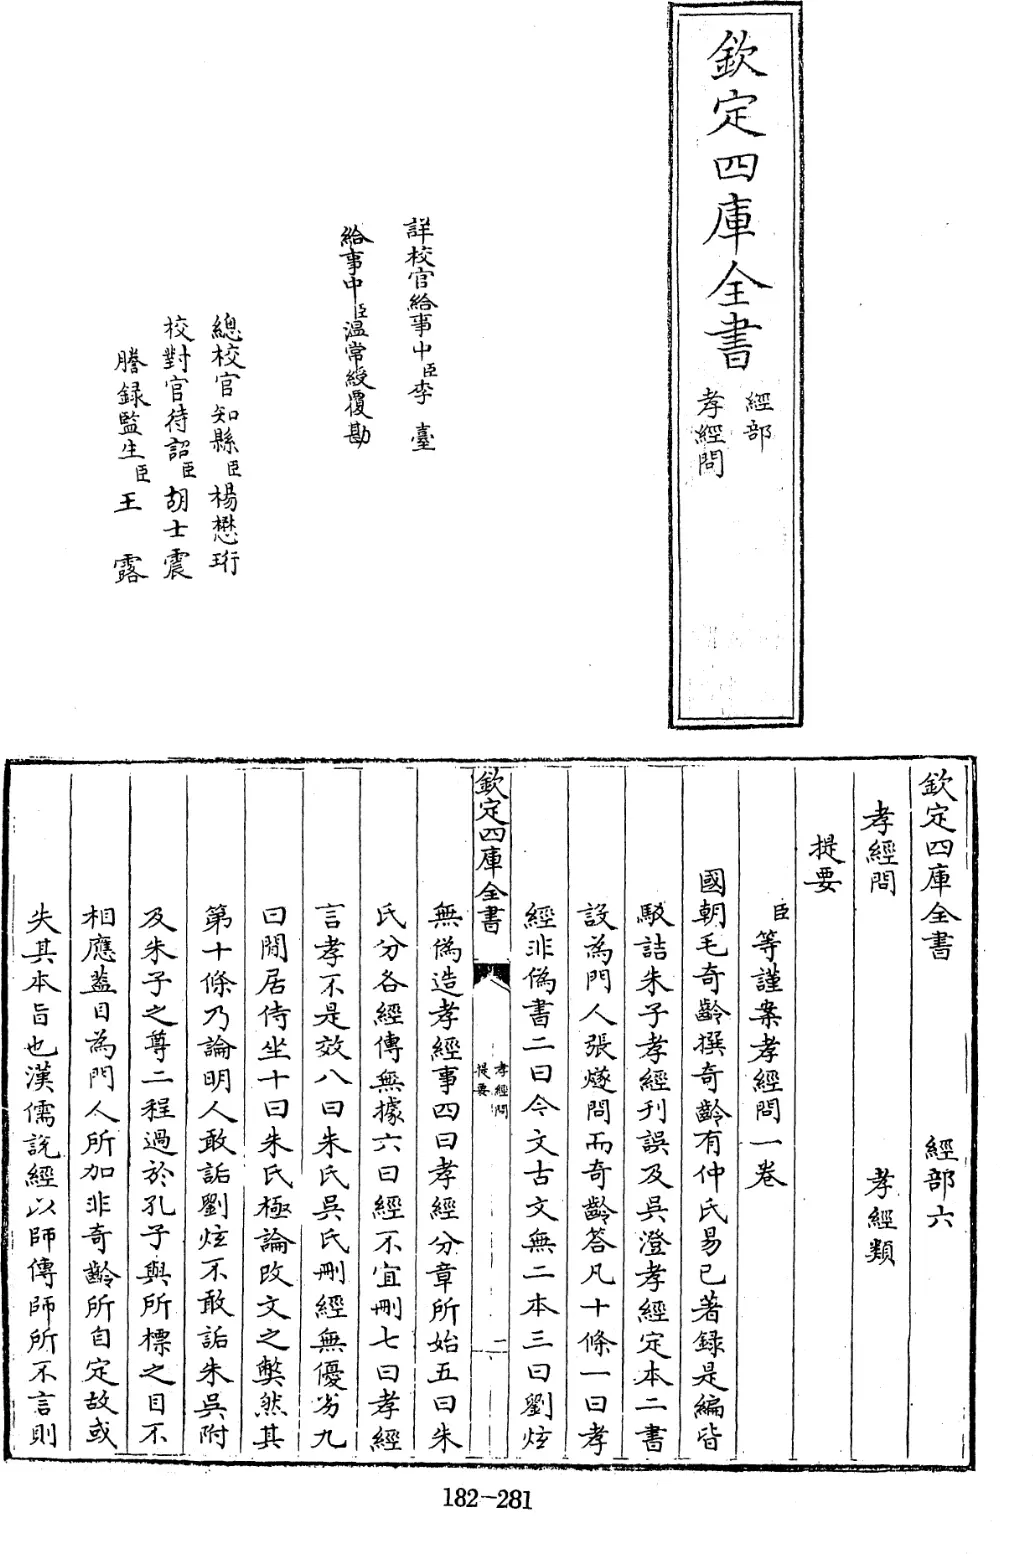 欽定四庫全書
經部
孝經問
詳校官給事中臣李臺
給事中臣溫常綬覆勘
總校官知縣臣楊懋珩
校對官待詔臣胡士震
謄錄監生臣王露
欽定四庫全書 經部六
孝經問 孝經類
提要
臣等謹案孝經問一卷
國朝毛奇齡撰奇齡有仲氏易已著錄是編皆
駁詰朱子孝經刋誤及吳澄孝經定本二書
設為門人張燧問而奇齡答凡十條一曰孝
經非偽書二曰今文古文無二本三曰劉炫
欽定四庫全書
孝經問
提要
一
無偽造孝經事四曰孝經分章所始五曰朱
氏分各經傳無據六曰經不宜刪七曰孝經
言孝不是效八曰朱氏吳氏刪經無優劣九
曰閒居侍坐十曰朱氏極論改文之弊然其
第十條乃論明人敢詬劉炫不敢詬朱吳附
及朱子之尊二程過於孔子與所標之目不
相應蓋目為門人所加非奇齡所自定故或
失其本旨也漢儒說經以師傳師所不言則
182-281